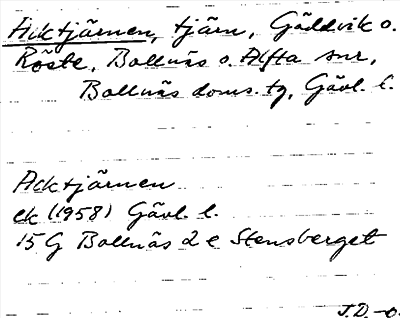 Acktjärnen, tjärn, Gäddvik o.
Röste, Bollnäs o. Alfta snr,
Bollnäs doms. tg, Gävl. l.
Acktjärnen
ek (1958) Gävl. l.
15 G Bollnäs 2 e Stensberget
J.D-o.